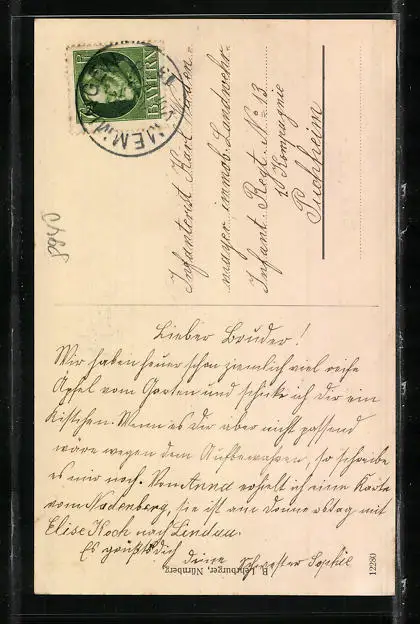 BAYERN
MEMMINGEN
Infanterist Karl Boden-
mayer immob. Landwehr-
Infant. Regt. No 13
10 Kompagnie
Puchheim
Lieber Bruder!
Wir haben heuer schon ziemlich viel reife
Äpfel vom Garten und schicke ich Dir ein
Kistchen. Wenn es Dir aber nicht passend
wäre wegen dem Aufbewahren, so schreibe
es mir noch. Von Anna erhielt ich eine Karte
vom Nebenberg, sie ist am Donnerstag mit
Elise Koch nach Lindau.
Es grüßt Dich
deine Schwester Sophie
B. Lehrburger, Nürnberg.
12280